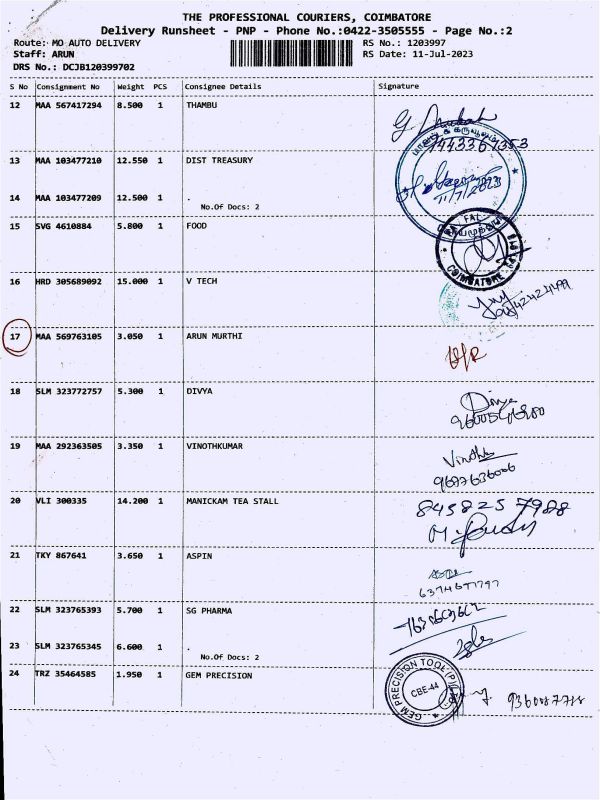 THE PROFESSIONAL COURIERS, COIMBATORE
Delivery Runsheet - PNP - Phone No.:0422-3505555 - Page No.:2
Route: MO AUTO DELIVERY RS No.: 1203997
Staff: ARUN RS Date: 11-Jul-2023
DRS No.: DCJB120399702
S No Consignment No Weight PCS Consignee Details Signature
12 MAA 567417294 8.500 1 THAMBU
9443367353
13 MAA 103477210 12.550 1 DIST TREASURY
11/7/2023
14 MAA 103477209 12.500 1 .
No.Of Docs: 2
15 SVG 4610884 5.800 1 FOOD
COIMBATORE
16 HRD 305689092 15.000 1 V TECH
17 MAA 569763105 3.050 1 ARUN MURTHI
18 SLM 323772757 5.300 1 DIVYA
Divya
19 MAA 292363505 3.350 1 VINOTHKUMAR
Vinoth
9697636006
20 VLI 300335 14.200 1 MANICKAM TEA STALL
845825 7988
21 TKY 867641 3.650 1 ASPIN
22 SLM 323765393 5.700 1 SG PHARMA
23 SLM 323765345 6.600 1 .
No.Of Docs: 2
24 TRZ 35464585 1.950 1 GEM PRECISION
GEM PRECISION TOOL (P) LTD
CBE-44